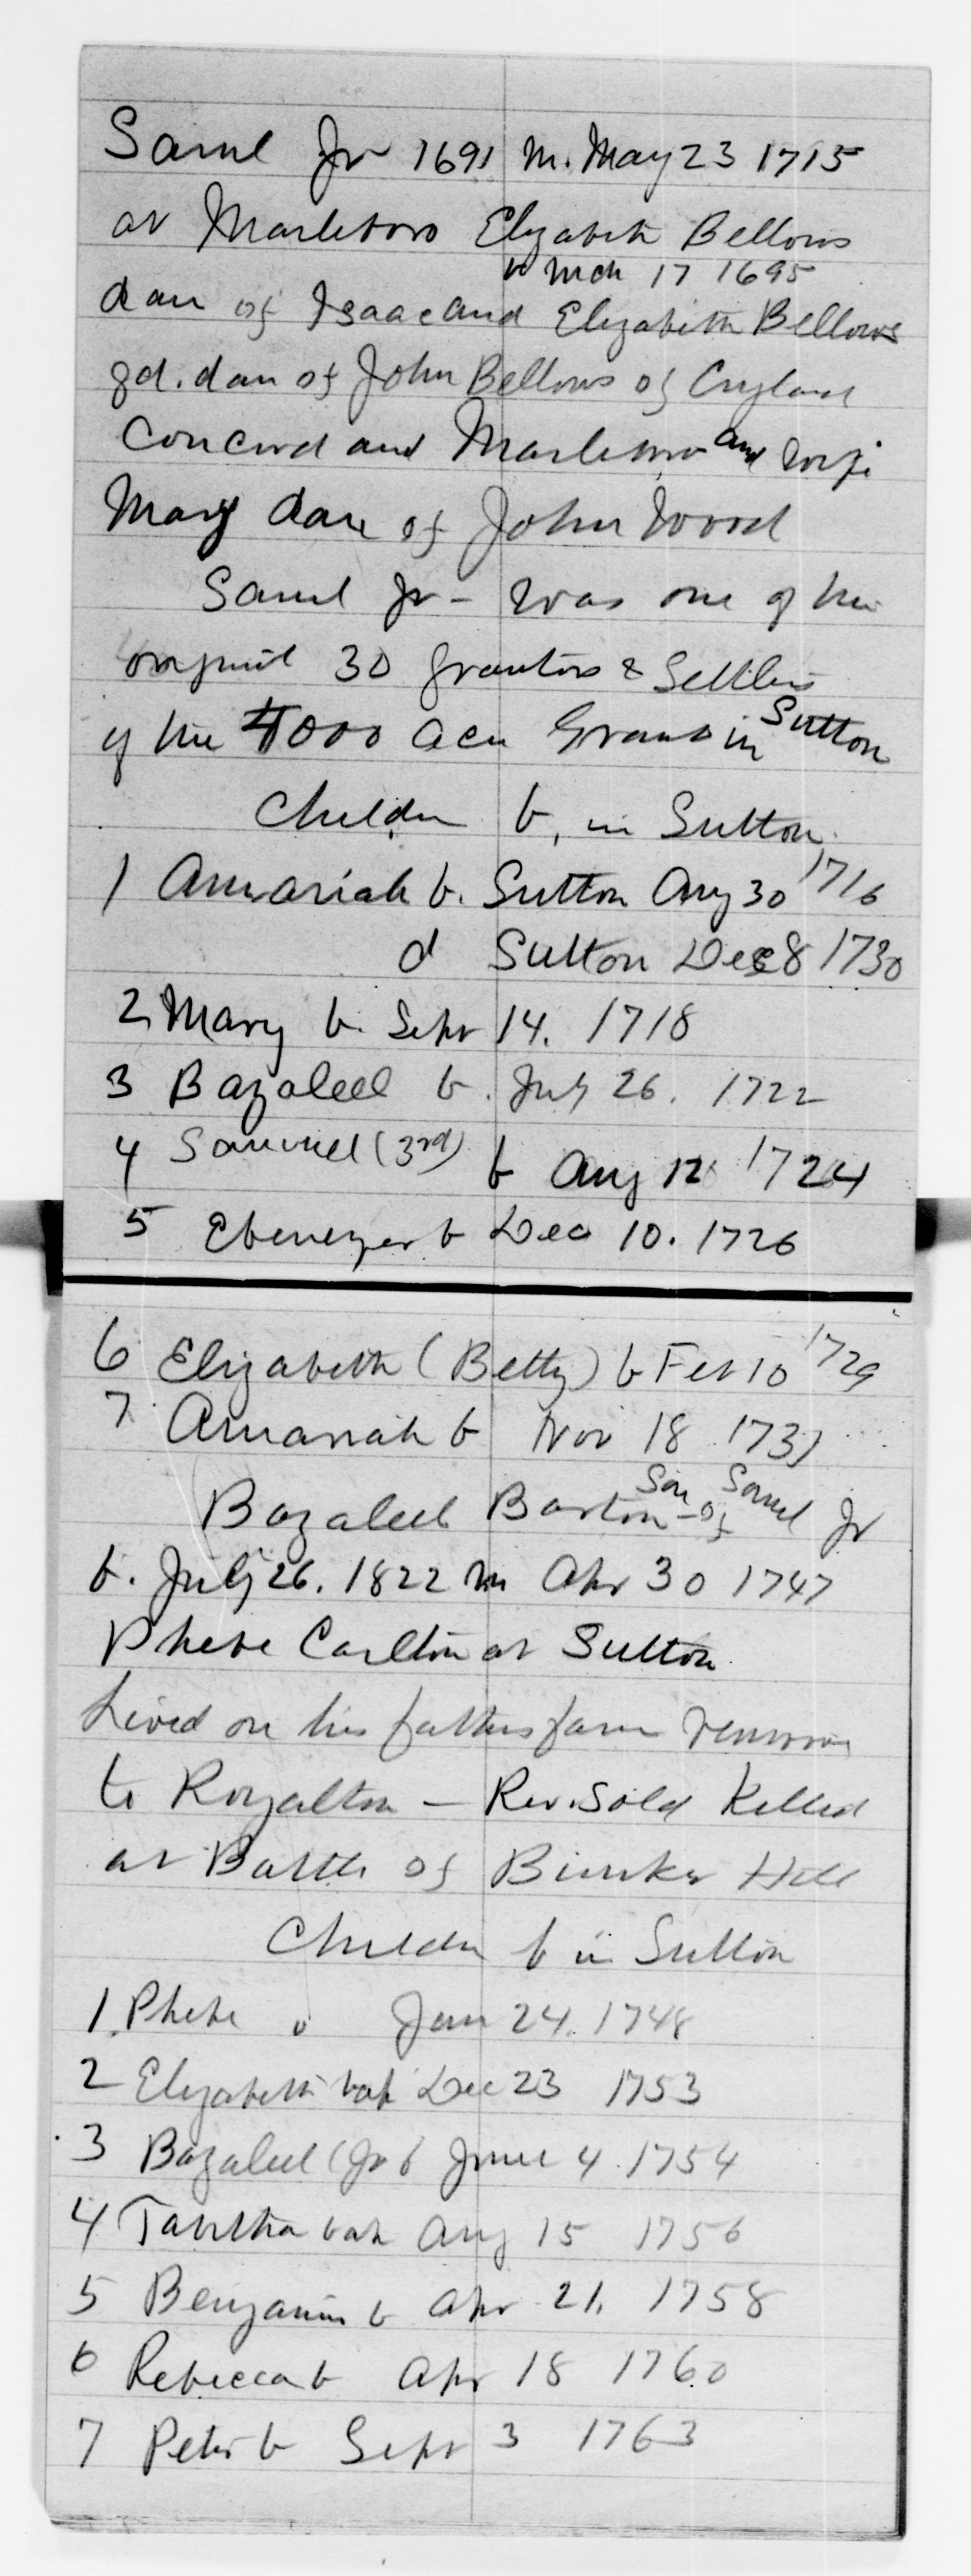 Saml Jr 1691 m. May 23 1715
at Marlboro Elizabeth Bellows
b Mch 17 1695
dau of Isaac and Elizabeth Bellows
gd. dau of John Bellows of England
Concord and Marlboro and wife
Mary dau of John Wood
Saml Jr - was one of the
original 30 grantors & Settlers
of the 4000 acre Grant in Sutton
Children b, in Sutton
1 Amariah b. Sutton Aug 30 1716
d Sutton Dec 8 1730
2 Mary b. Sept 14. 1718
3 Bazaleel b. July 26. 1722
4 Samuel (3rd) b Aug 12 1724
5 Ebenezer b Dec 10. 1726
6 Elizabeth (Betty) b Feb 10 1729
7 Amariah b Nov 18 1731
Bazaleel Barton - Son of Saml Jr
b. July 26. 1822 m Apr 30 1747
Phebe Carlton at Sutton
Lived on his fathers farm
to Royalton - Rev. Sold Killed
at Battle of Bunker Hill
Children b in Sutton
1. Phebe Jan 24. 1748
2 Elizabeth bap Dec 23 1753
3 Bazaleel (Jr b June 4. 1754
4 Tabitha bap Aug 15 1756
5 Benjamin b Apr 21. 1758
6 Rebecca b Apr 18 1760
7 Peter b Sept 3 1763